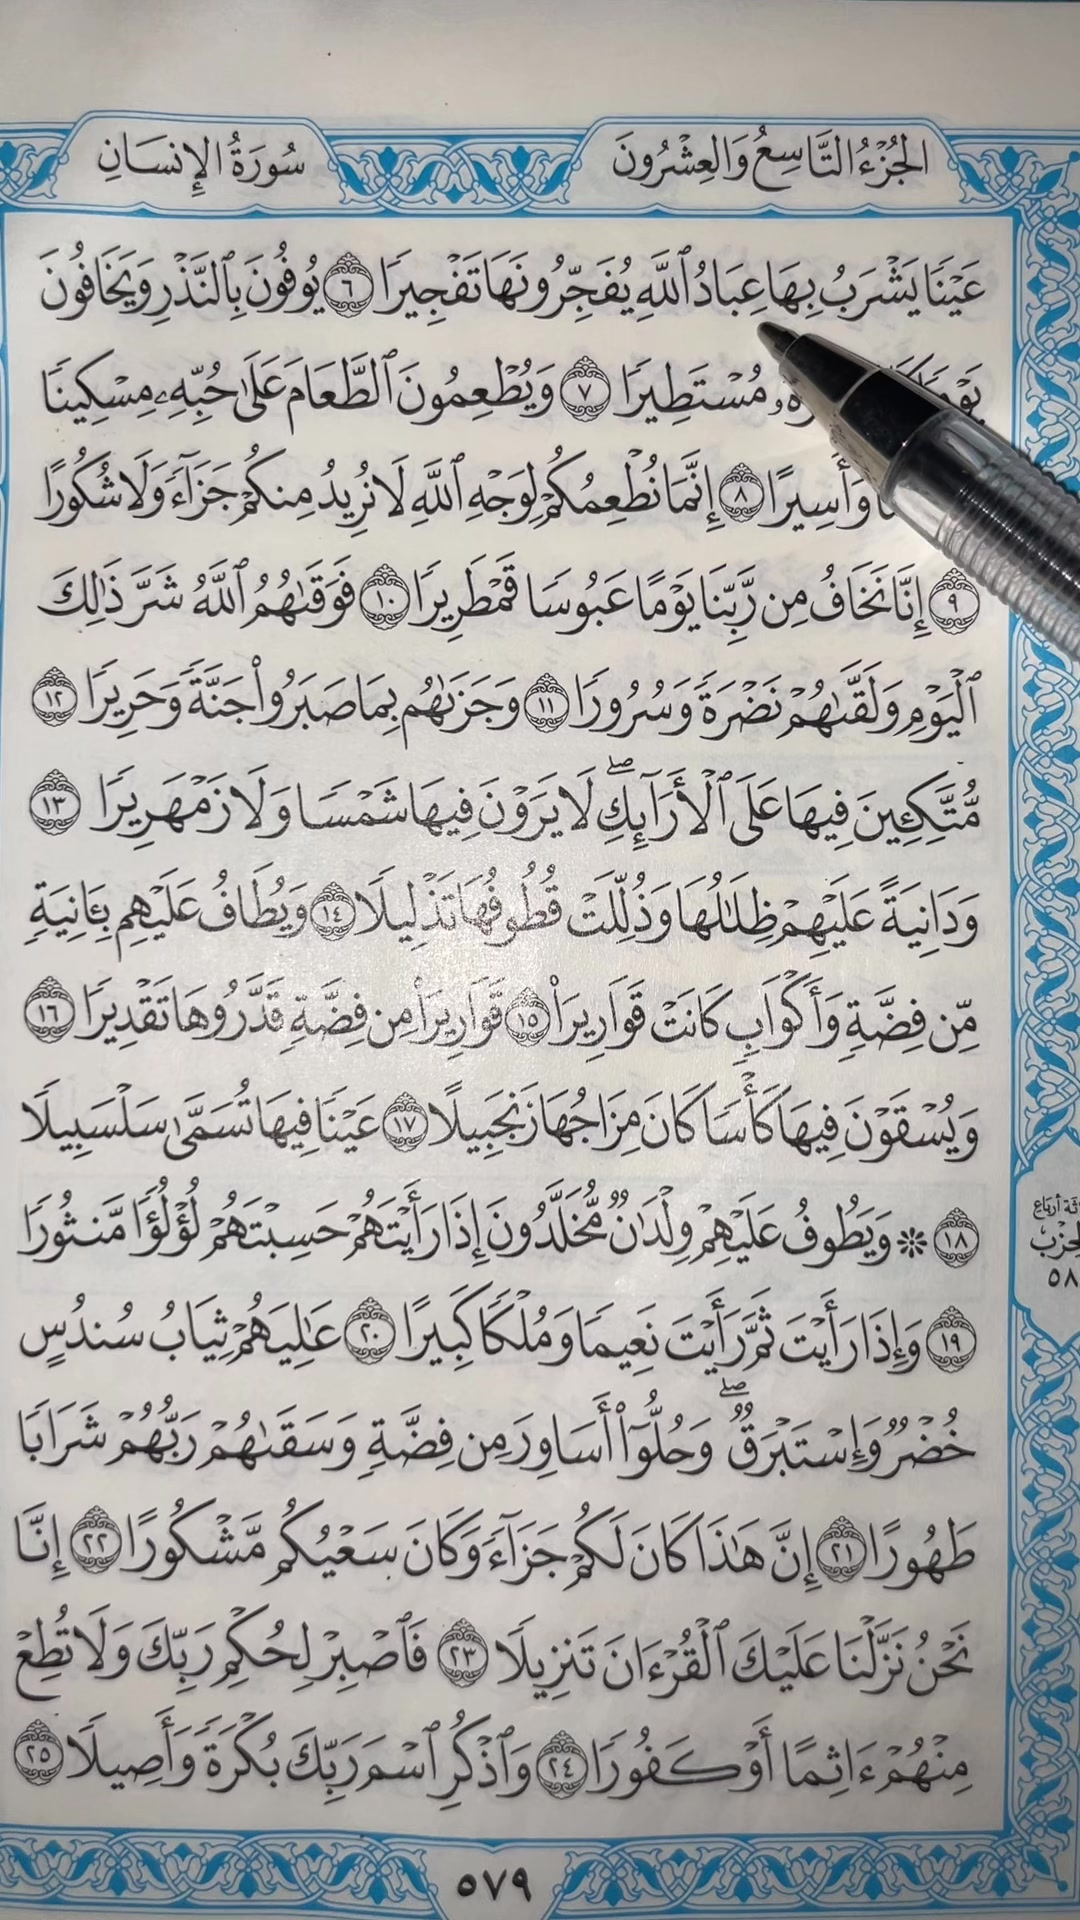 الجُزْءُ التَّاسِعُ وَالعِشْرُونَ
سُورَةُ الإِنسَانِ
عَيْنًا يَشْرَبُ بِهَا عِبَادُ ٱللَّهِ يُفَجِّرُونَهَا تَفْجِيرًا ٦ يُوفُونَ بِٱلنَّذْرِ وَيَخَافُونَ
مُسْتَطِيرًا ٧ وَيُطْعِمُونَ ٱلطَّعَامَ عَلَىٰ حُبِّهِۦ مِسْكِينًا
وَأَسِيرًا ٨ إِنَّمَا نُطْعِمُكُمْ لِوَجْهِ ٱللَّهِ لَا نُرِيدُ مِنكُمْ جَزَآءً وَلَا شُكُورًا
٩ إِنَّا نَخَافُ مِن رَّبِّنَا يَوْمًا عَبُوسًا قَمْطَرِيرًا ١٠ فَوَقَىٰهُمُ ٱللَّهُ شَرَّ ذَٰلِكَ
ٱلْيَوْمِ وَلَقَّىٰهُمْ نَضْرَةً وَسُرُورًا ١١ وَجَزَىٰهُم بِمَا صَبَرُوا۟ جَنَّةً وَحَرِيرًا ١٢
مُّتَّكِـِٔينَ فِيهَا عَلَى ٱلْأَرَآئِكِ ۖ لَا يَرَوْنَ فِيهَا شَمْسًا وَلَا زَمْهَرِيرًا ١٣
وَدَانِيَةً عَلَيْهِمْ ظِلَـٰلُهَا وَذُلِّلَتْ قُطُوفُهَا تَذْلِيلًا ١٤ وَيُطَافُ عَلَيْهِم بِـَٔانِيَةٍ
مِّن فِضَّةٍ وَأَكْوَابٍ كَانَتْ قَوَارِيرَا۠ ١٥ قَوَارِيرَا۟ مِن فِضَّةٍ قَدَّرُوهَا تَقْدِيرًا ١٦
وَيُسْقَوْنَ فِيهَا كَأْسًا كَانَ مِزَاجُهَا زَنجَبِيلًا ١٧ عَيْنًا فِيهَا تُسَمَّىٰ سَلْسَبِيلًا
١٨ ۞ وَيَطُوفُ عَلَيْهِمْ وِلْدَٰنٌ مُّخَلَّدُونَ إِذَا رَأَيْتَهُمْ حَسِبْتَهُمْ لُؤْلُؤًا مَّنثُورًا
١٩ وَإِذَا رَأَيْتَ ثَمَّ رَأَيْتَ نَعِيمًا وَمُلْكًا كَبِيرًا ٢٠ عَـٰلِيَهُمْ ثِيَابُ سُندُسٍ
خُضْرٌ وَإِسْتَبْرَقٌ ۖ وَحُلُّوٓا۟ أَسَاوِرَ مِن فِضَّةٍ وَسَقَىٰهُمْ رَبُّهُمْ شَرَابًا
طَهُورًا ٢١ إِنَّ هَـٰذَا كَانَ لَكُمْ جَزَآءً وَكَانَ سَعْيُكُم مَّشْكُورًا ٢٢ إِنَّا
نَحْنُ نَزَّلْنَا عَلَيْكَ ٱلْقُرْءَانَ تَنزِيلًا ٢٣ فَٱصْبِرْ لِحُكْمِ رَبِّكَ وَلَا تُطِعْ
مِنْهُمْ ءَاثِمًا أَوْ كَفُورًا ٢٤ وَٱذْكُرِ ٱسْمَ رَبِّكَ بُكْرَةً وَأَصِيلًا ٢٥
أرباع
٥٨
٥٧٩